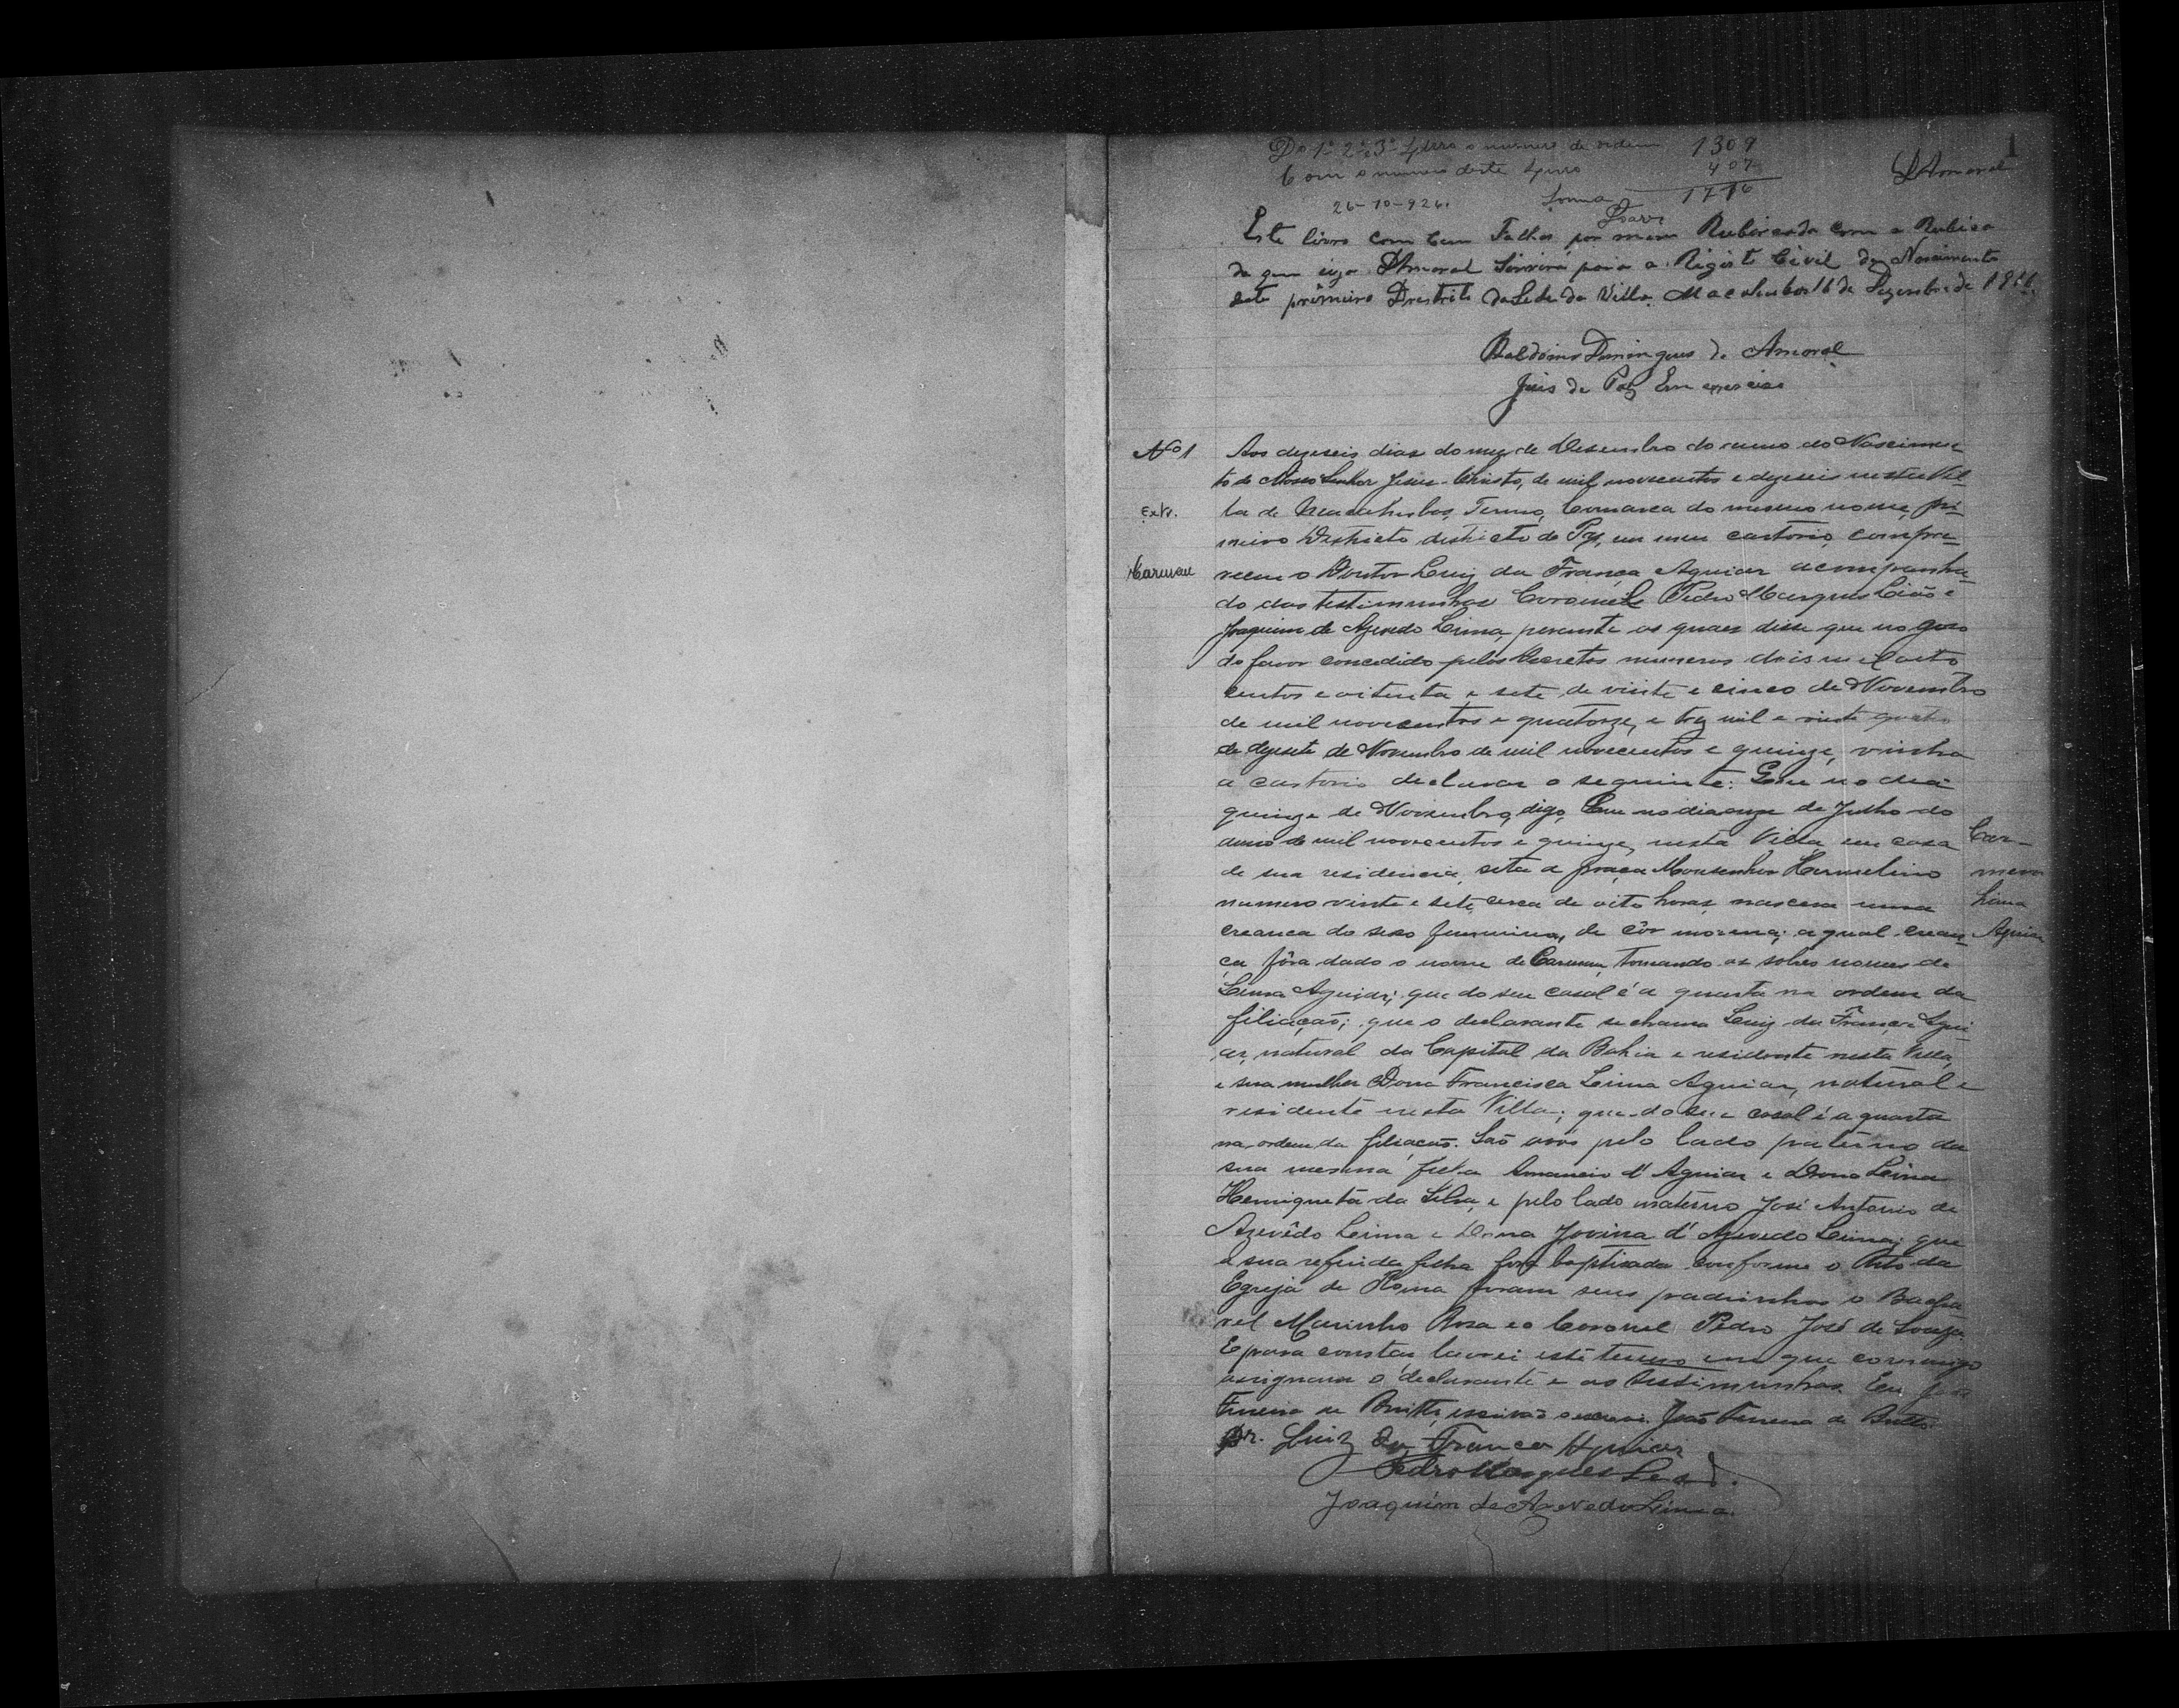 Do 1º 2º 3º Livro o numero de ordem 1309
Com o numero deste Livro 407
Somma 1716
26-10-926. Soares
1
DAmaral
Este livro com cem Folhas por mim Rubircada com a Rubica
de que uzo DAmaral Sirvirá para o Rigisto Civil de Nascimento
deste primeiro Drestrito da Sede da Villa. Macahubas 16 de Dezembro de 1916
Baldoino Domingues de Amaral
Juis de Paz Em exercicio
Nº 1
Extr.
Carmem
Aos dezeseis dias do mez de Desembro do anno do Nascimen-
to de Nosso Senhor Jesus-Christo, de mil novecentos e dezeseis nesta Vil-
la de Macahubas, Termo, Comarca do mesmo nome, pri-
meiro Districto districto de Paz, em meu cartorio, compa-
receu o Doutor Luiz da França Aguiar acompanha-
do das testimunhas Coroneis Pedro Marques Leão e
Joaquim de Azevedo Lima, perante as quaes disse que no goso
do favor concedido pelos Decretos numeros dois mil oito
centos e oitenta e sete de vinte e cinco de Novembro
de mil novecentos e quatorze, e trez mil e vinte quatro
de dezesete de Novembro de mil novecentos e quinze, vinha
a cartorio declarar o seguinte: Que no dia
quinze de Novembro, digo, Que no dia onze de Julho do
anno de mil novecentos e quinze, nesta Villa em casa
de sua residencia, sita a praça Monsenhor Hermelino
numero vinte e sete, cerca de oito horas, nascera uma
creança do sexo feminino, de côr morena; a qual crean-
ça fôra dado o nome de Carmem, tomando os sobre nomes de
Lima Aguiar; que do seu casal é a quarta na ordem da
filiação; que o declarante se chama Luiz da França Agui-
ar, natural da Capital da Bahia e residente nesta Villa,
e sua mulher Dona Francisca Lima Aguiar, natural e
residente nesta Villa; que do seu casal é a quarta
na ordem da filiação. São avós pelo lado paterno da
sua mesma filha Amancio d'Aguiar e Dona
Henriqueta da Silva, e pelo lado materno José Antonio de
Azevêdo Lima e Dona Jovina d'Azevedo Lima; que
a sua referida filha foi baptisada conforme o Rito da
Egreja de Roma foram seus padrinhos o Bacha-
rel Marinho Rosa e o Coronel Pedro José de Souza.
E para constar lavrei este termo em que commigo
assignam o declarante e as testimunhas. Eu João
Ferreira de Britto, escrivão o escrevi. João Ferreira de Britto
Dr. Luiz da França Aguiar
Pedro Marques Leão.
Joaquim de Azevedo Lima.
Car-
mem
Lima
Aguiar